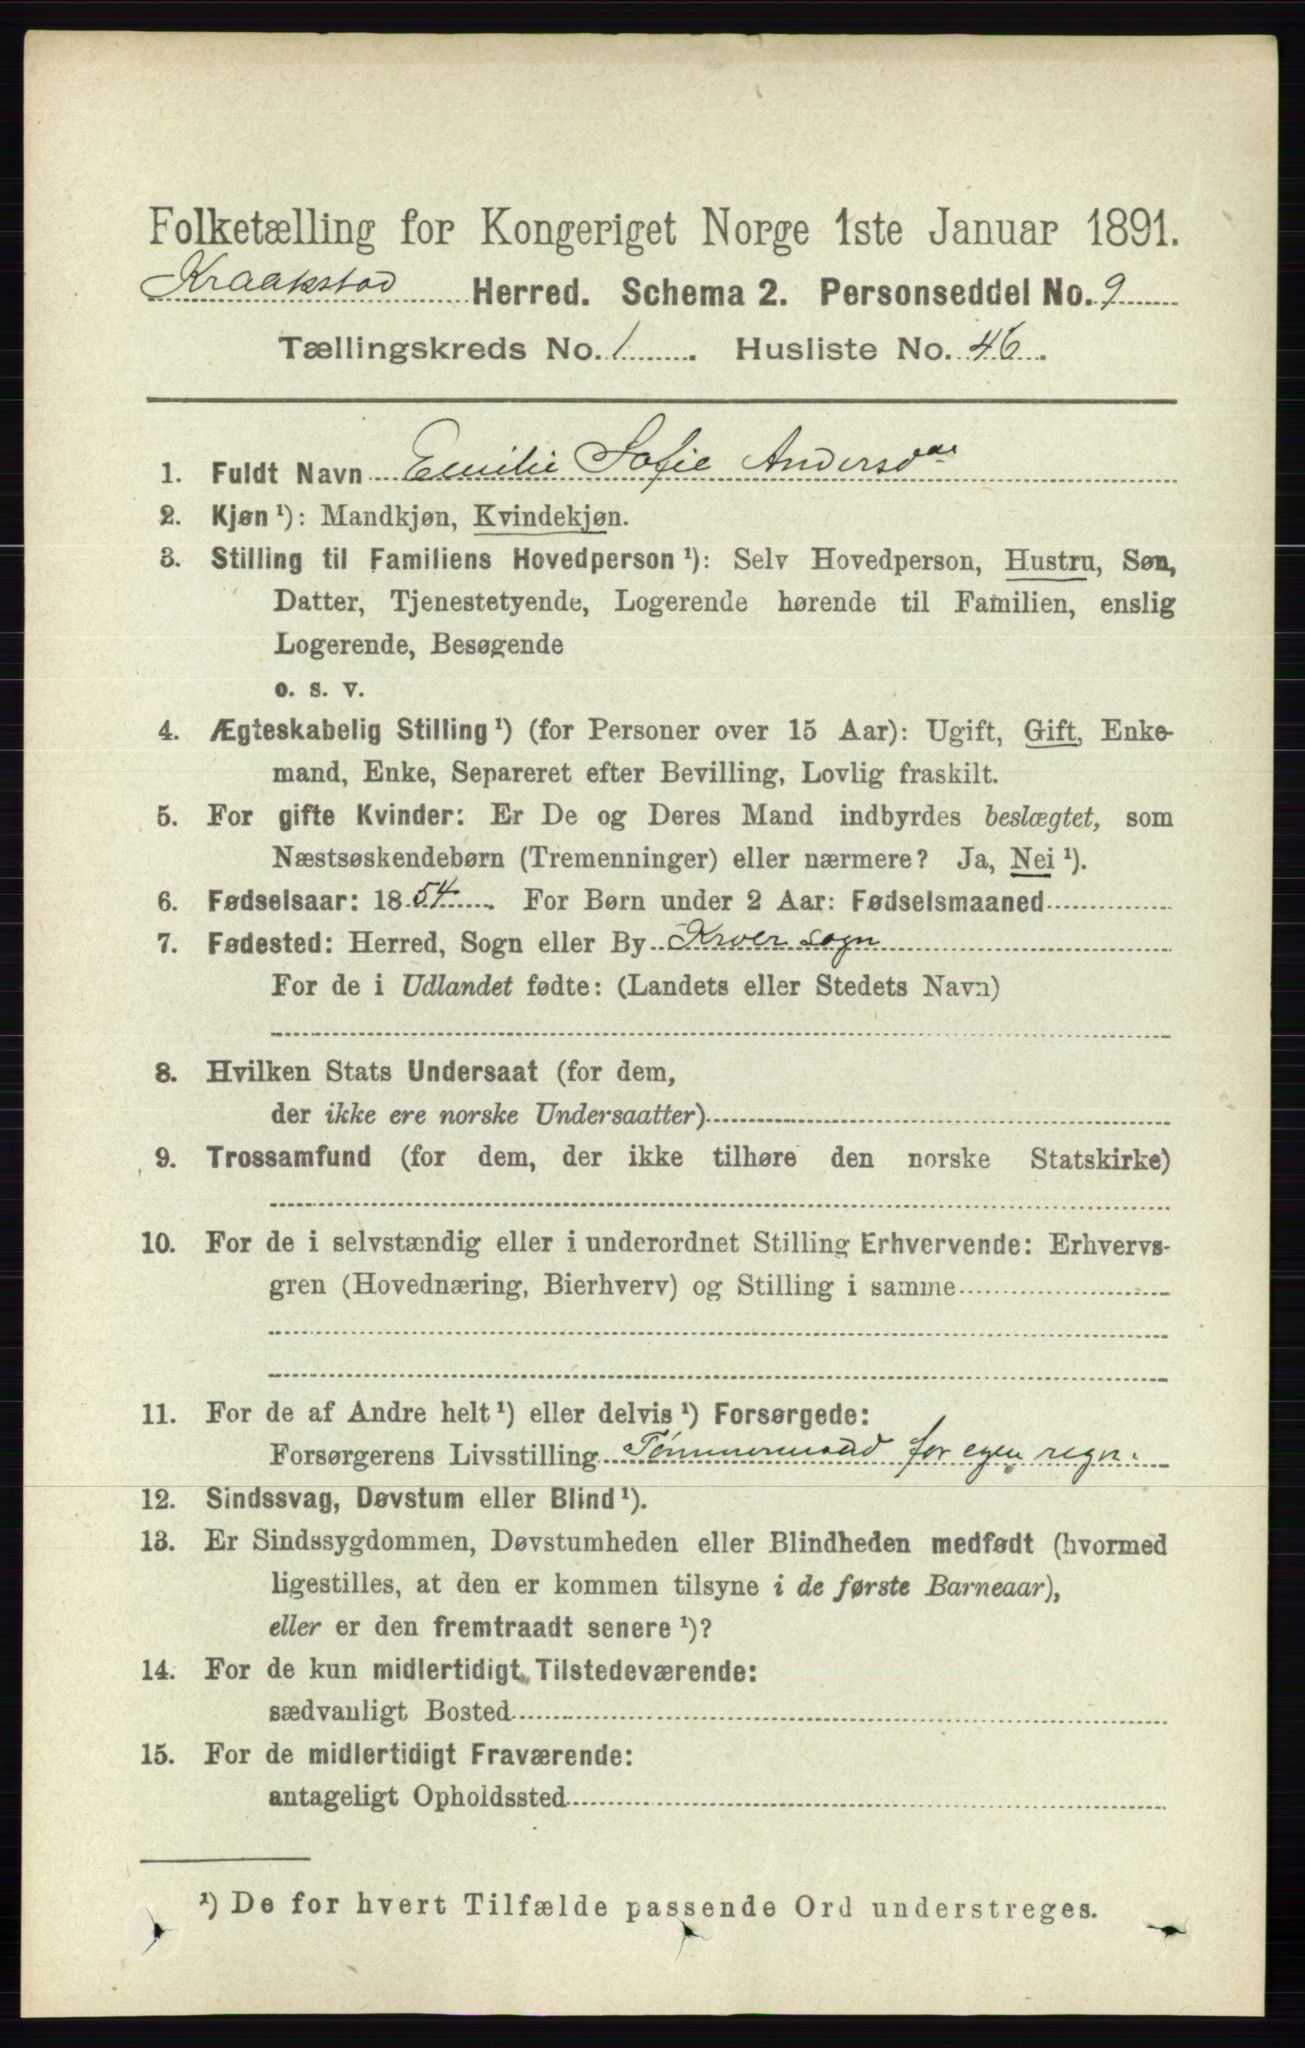 Folketælling for Kongeriget Norge 1ste Januar 1891.
Kraakstad Herred. Schema 2. Personseddel No. 9
Tællingskreds No. 1. Husliste No. 46.
1. Fuldt Navn Emilie Sofie Andersdaa
2. Kjøn ¹): Mandkjøn, Kvindekjøn.
3. Stilling til Familiens Hovedperson ¹): Selv Hovedperson, Hustru, Søn,
Datter, Tjenestetyende, Logerende hørende til Familien, enslig
Logerende, Besøgende
o. s. v.
4. Ægteskabelig Stilling ¹) (for Personer over 15 Aar): Ugift, Gift, Enke-
mand, Enke, Separeret efter Bevilling, Lovlig fraskilt.
5. For gifte Kvinder: Er De og Deres Mand indbyrdes beslægtet, som
Næstsøskendebørn (Tremenninger) eller nærmere? Ja, Nei ¹).
6. Fødselsaar: 1854. For Børn under 2 Aar: Fødselsmaaned
7. Fødested: Herred, Sogn eller By Kroer sogn
For de i Udlandet fødte: (Landets eller Stedets Navn)
8. Hvilken Stats Undersaat (for dem,
der ikke ere norske Undersaatter)
9. Trossamfund (for dem, der ikke tilhøre den norske Statskirke)
10. For de i selvstændig eller i underordnet Stilling Erhvervende: Erhvervs-
gren (Hovednæring, Bierhverv) og Stilling i samme
11. For de af Andre helt ¹) eller delvis ¹) Forsørgede:
Forsørgerens Livsstilling Tömmermand for egen regn.
12. Sindssvag, Døvstum eller Blind ¹).
13. Er Sindssygdommen, Døvstumheden eller Blindheden medfødt (hvormed
ligestilles, at den er kommen tilsyne i de første Barneaar),
eller er den fremtraadt senere ¹)?
14. For de kun midlertidigt Tilstedeværende:
sædvanligt Bosted
15. For de midlertidigt Fraværende:
antageligt Opholdssted
¹) De for hvert Tilfælde passende Ord understreges.